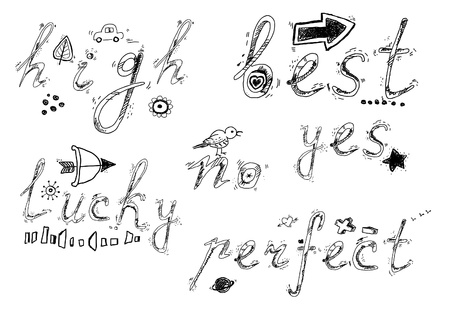 high
best
no
yes
lucky
perfect